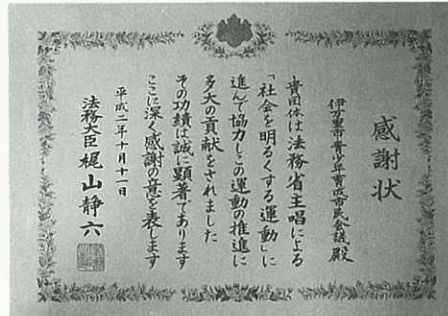 感謝状
伊万里市青少年育成市民会議殿
貴団体は法務省主唱による
「社会を明るくする運動」に
進んで協力しこの運動の推進に
多大の貢献をされました
その功績は誠に顕著であります
ここに深く感謝の意を表します
平成二年十月十一日
法務大臣梶山静六